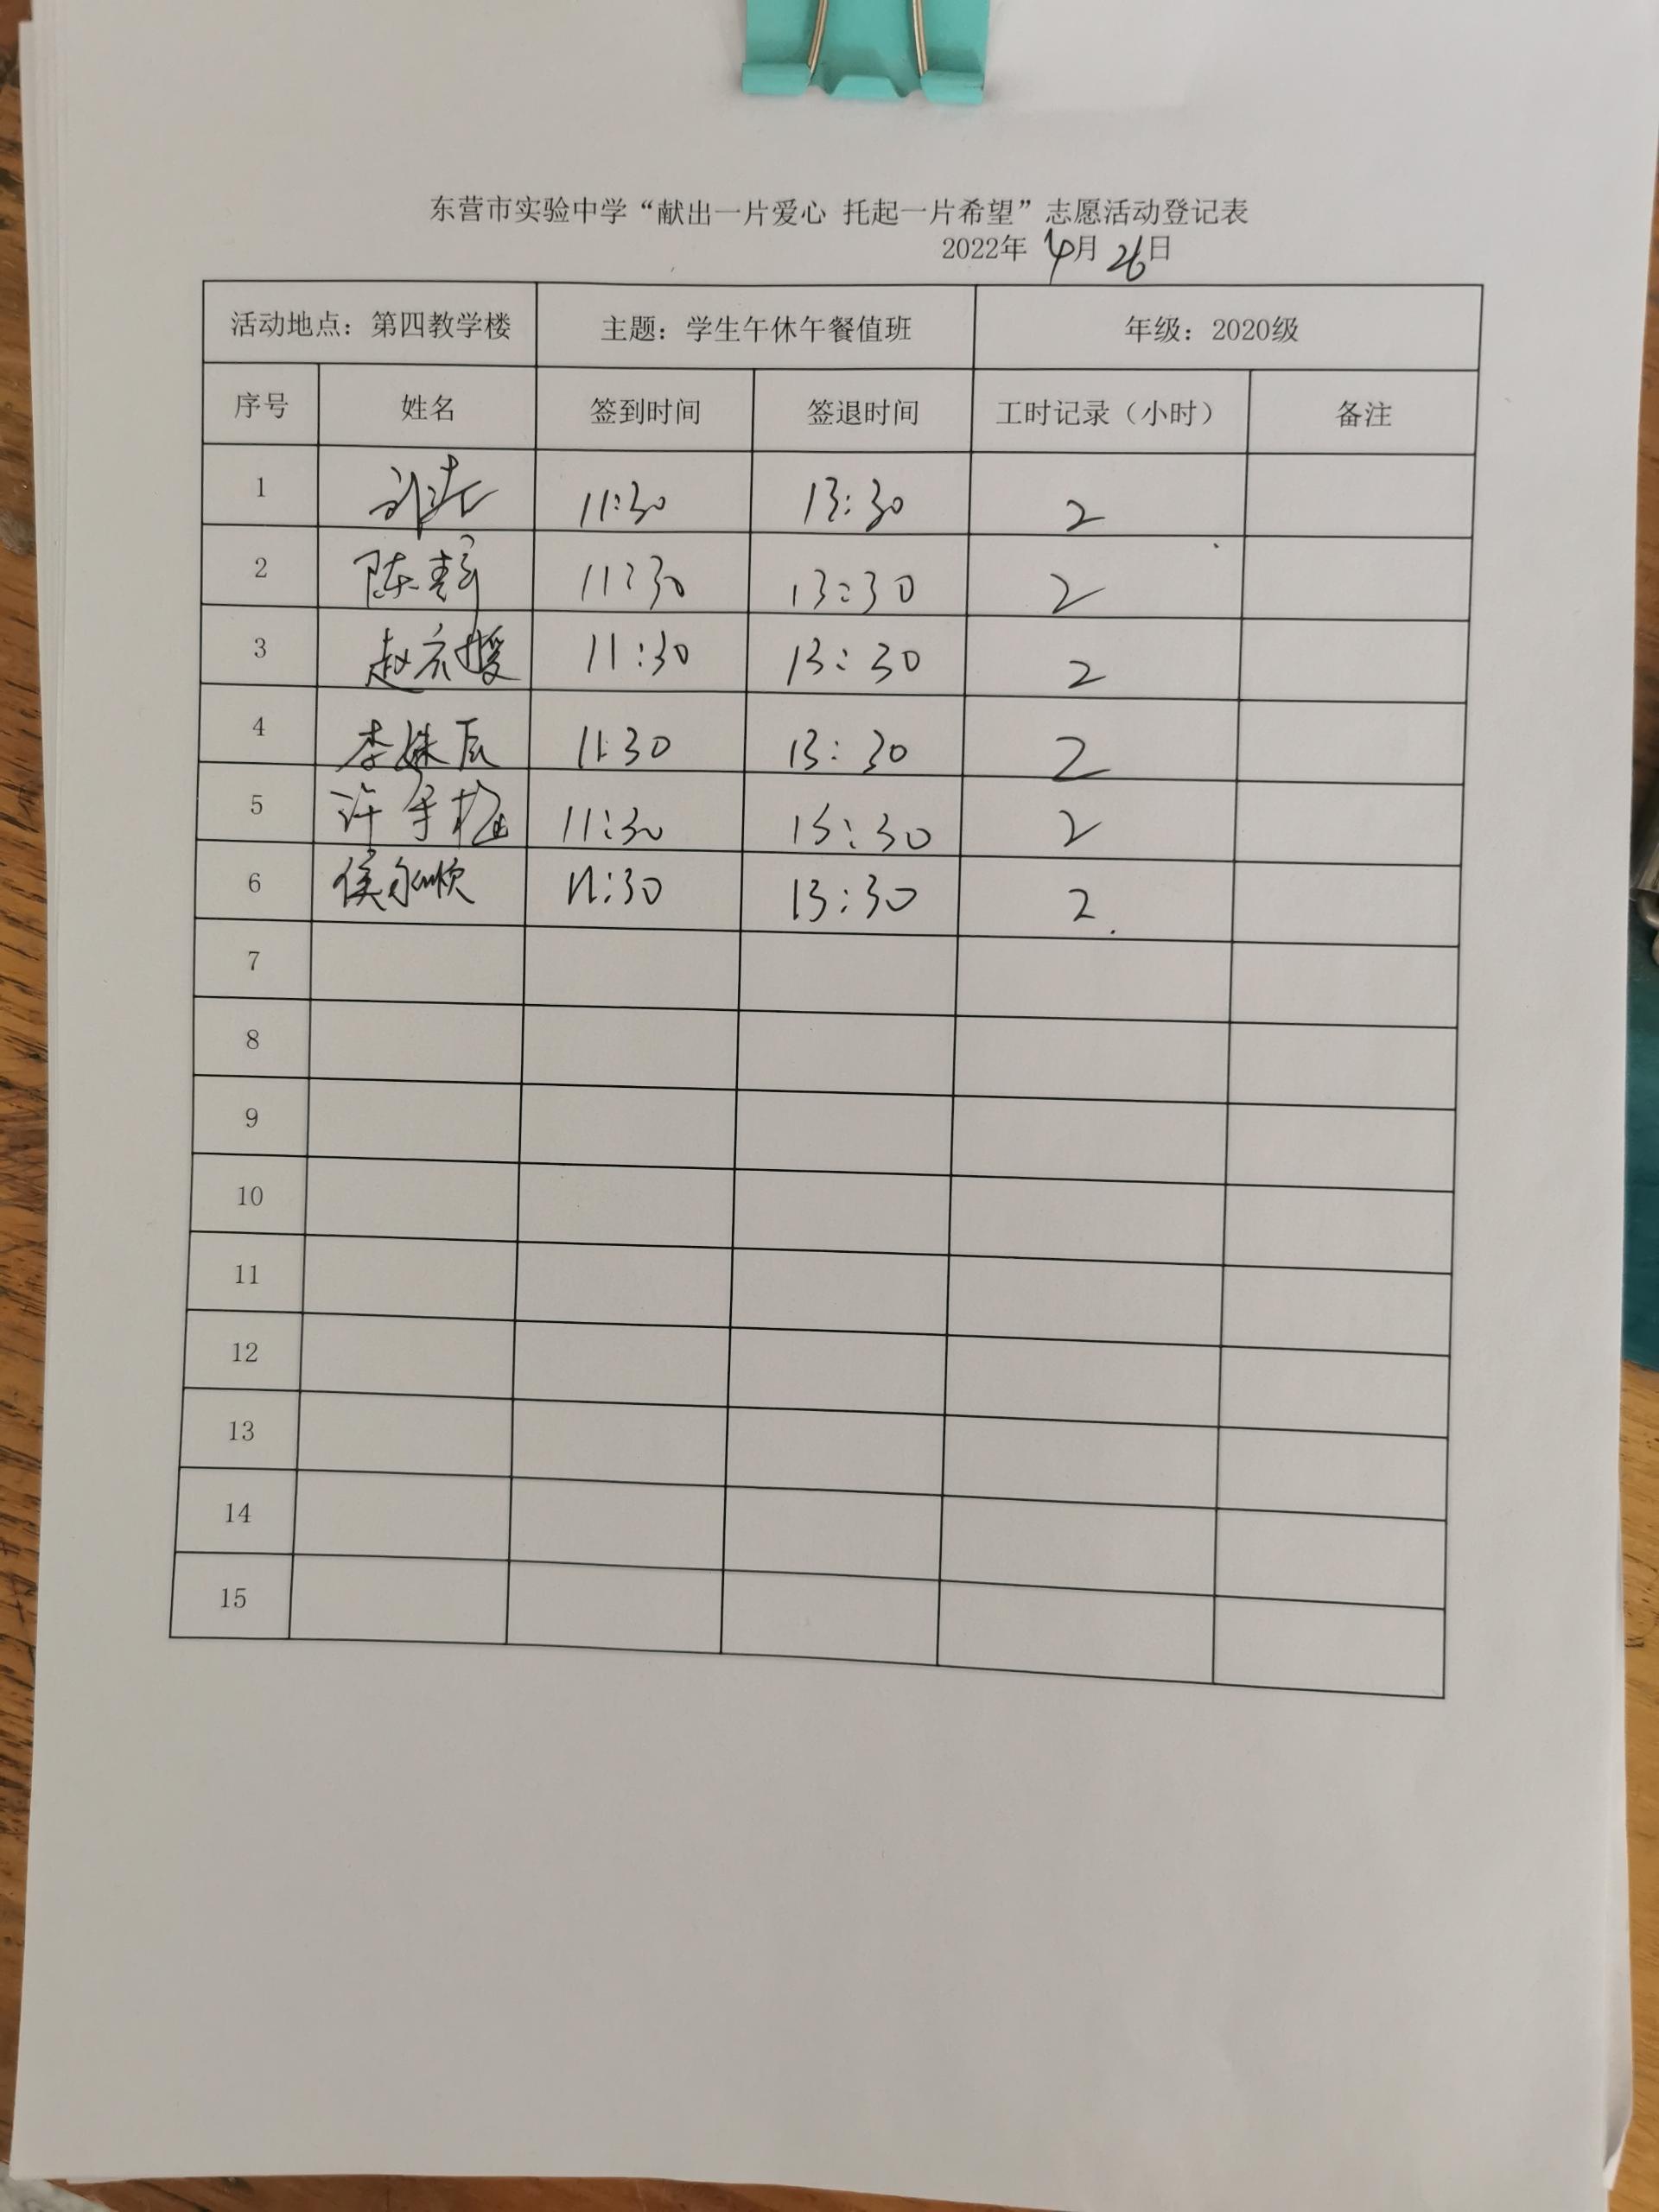 东营市实验中学“献出一片爱心 托起一片希望”志愿活动登记表
2022年 4月 26日
活动地点：第四教学楼 主题：学生午休午餐值班 年级：2020级
序号 姓名 签到时间 签退时间 工时记录（小时） 备注
1 11:30 13:30 2
2 陈 11:30 13:30 2
3 赵 11:30 13:30 2
4 李姝辰 11:30 13:30 2
5 许 11:30 13:30 2
6 侯永顺 11:30 13:30 2
7
8
9
10
11
12
13
14
15